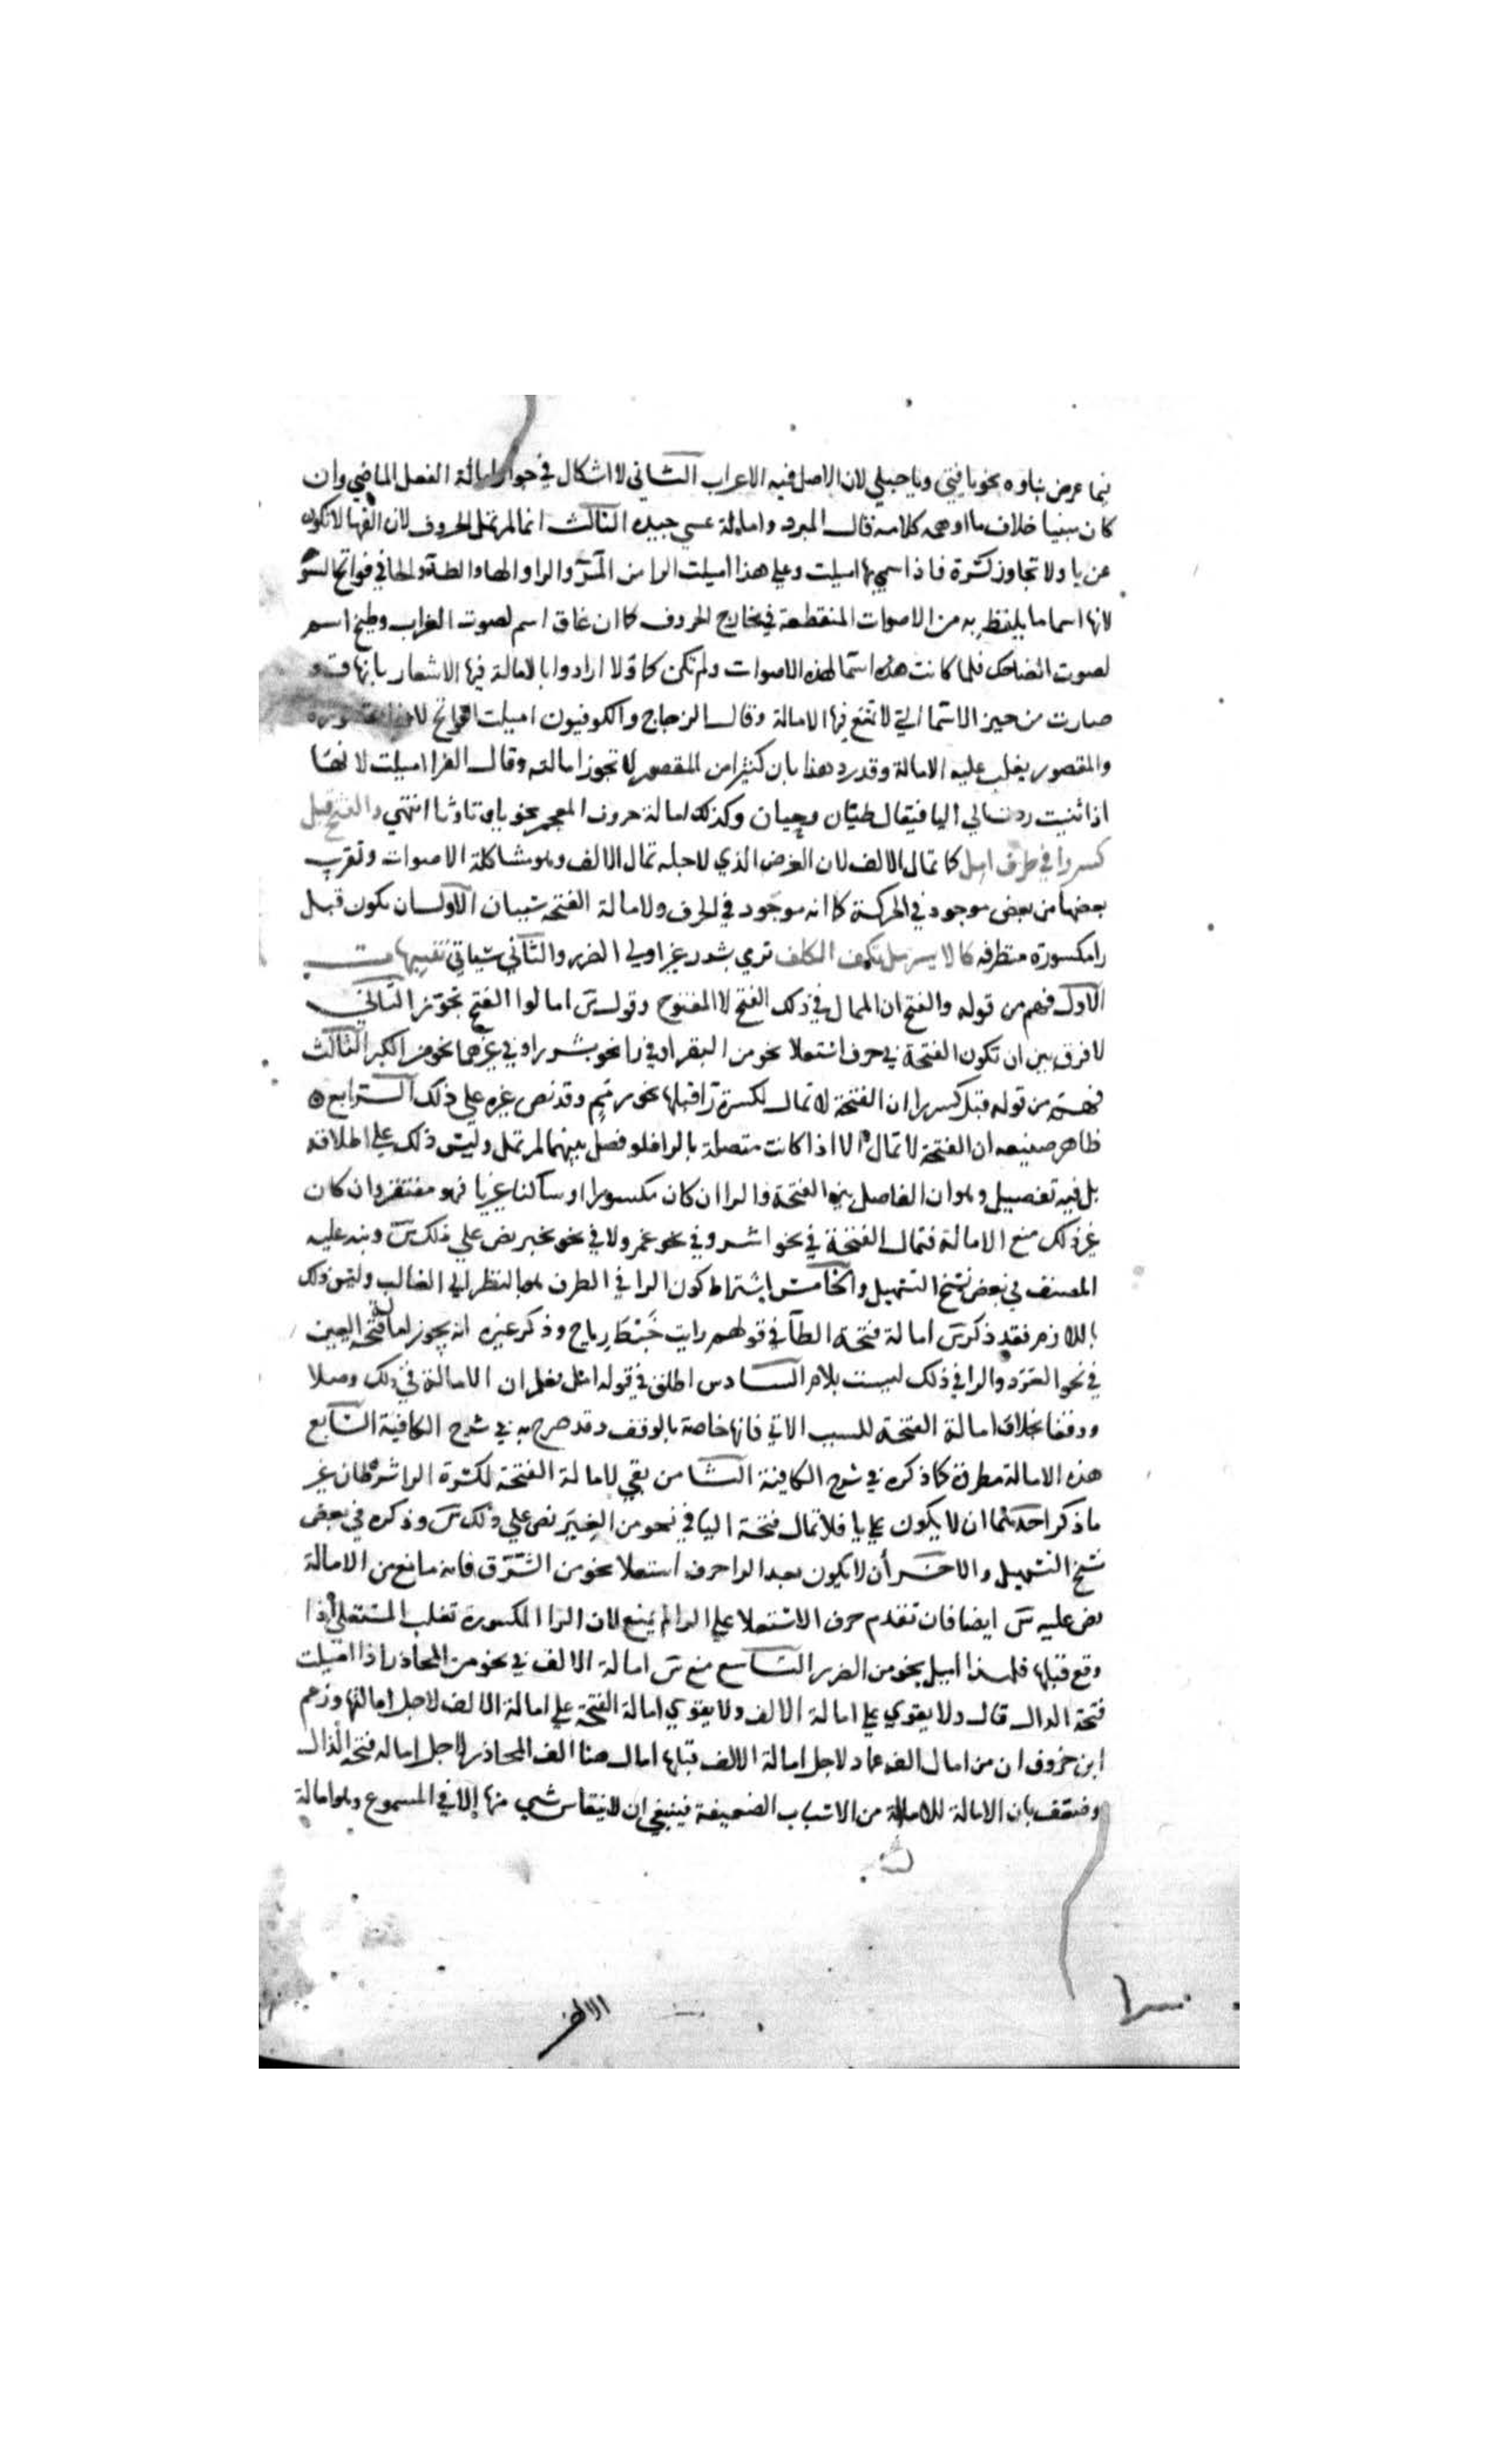 فيما عرض بناوه نحو يا فتى ويا حبلى لان الاصل فيه الاعراب الثانى لا اشكال في جواز امالة الفعل الماضي وان
كان مبنيا خلاف ما اوهمه كلامه قال المبرد وامالة عسي جيده الثالث انما لم تمل الحروف لان الفها لا تكون
عن يا ولا تجاوز كسرة فاذا سمي بها اميلت وعلي هذا اميلت الرا من المر والرا والها والطا والحا في فواتح السور
لانها اسما ما يلفظ به من الاصوات المنقطعة في مخارج الحروف كما ان غاق اسم لصوت الغراب وطيخ اسم
لصوت الضاحك فلما كانت هذه اسما لهذه الاصوات ولم تكن كما ولا ارادوا بالامالة فيها الاشعار بانها قد
صارت من حيز الاسما التي لا تمتنع فيها الامالة وقال الزجاج والكوفيون اميلت الفواتح لانها مقصورة
والمقصور يغلب عليه الامالة وقد رد هذا بان كثيرا من المقصور لا تجوز امالته وقال الفرا اميلت لانها
اذا ثنيت ردت الي اليا فيقال طيان وحيان وكذلك امالة حروف المعجم نحو با وتا وثا انتهي والفتح قبل
كسر را في طرف امل كما تمال الالف لان الغرض الذي لاجله تمال الالف وهو مشاكلة الاصوات وتقريب
بعضها من بعض موجود في الحركة كما انه موجود في الحرف ولامالة الفتحة سببان الاول ان تكون قبل
را مكسورة متطرفه كالايسر مل تكف الكلف ترى بشرر غير اولي الضرر والثاني سياتي تنبيهات
الاول فهم من قوله والفتح ان الممال في ذلك الفتح لا المفتوح وقول س امالوا المفتوح تجوز الثاني
لا فرق بين ان تكون الفتحة في حرف استعلا نحو من البقر او في را نحو بشرر او في غيرهما نحو من الكبر الثالث
فهم من قوله قبل كسر را ان الفتحة لا تمال لكسرة را قبلها نحو رمم وقد نص غيره علي ذلك الرابع
ظاهر صنيعه ان الفتحة لا تمال الا اذا كانت متصلة بالرا فلو فصل بينهما لم تمل وليس ذلك علي اطلاقه
بل فيه تفصيل وهو ان الفاصل بين الفتحة والرا ان كان مكسورا او ساكنا غير يا فهو مغتفر وان كان
غير ذلك منع الامالة فتمال الفتحة في نحو اشر وفي نحو عمرو لا في نحو بجير نص علي ذلك س ونبه عليه
المصنف في بعض نسخ التسهيل والخامس اشتراط كون الرا في الطرف هو بالنظر الي الغالب وليس ذلك
باللازم فقد ذكر س امالة فتحة الطا في قولهم رايت خبط رياح وذكر غيره انه يجوز امالة فتحة العين
في نحو العرد والرا في ذلك ليست بلام السادس اطلق في قوله امل فعلم ان الامالة في ذلك وصلا
ووقفا بخلاف امالة الفتحة للسبب الاتي فانها خاصة بالوقف وقد صرح به في شرح الكافية السابع
هذه الامالة مطردة كما ذكره في شرح الكافية الثامن بقي لامالة الفتحة لكسرة الرا شرطان غير
ما ذكر احدهما ان لا يكون علي يا فلا تمال فتحة اليا في نحو من الغير نص علي ذلك س وذكره في بعض
نسخ التسهيل والاخر أن لا يكون بعد الرا حرف استعلا نحو من الشرق فانه مانع من الامالة
نص عليه س ايضا فان تقدم حرف الاستعلا علي الرا لم يمنع لان الرا المكسورة تغلب المستعلي اذا
وقع قبلها فلهذا اميل نحو من الضرر التاسع منع س امالة الالف في نحو من المحاذر اذا اميلت
فتحة الذال قال ولا يقوي علي امالة الالف ولا يقوي امالة الفتحة علي امالة الالف لاجل امالتها وزعم
ابن خروف ان من امال الف عماد لاجل امالة الالف قبلها امال هنا الف المحاذر لاجل امالة فتحة الذال
وضعف بان الامالة للامالة من الاسباب الضعيفة فينبغي ان لا ينقاس شي منها إلا في المسموع وهو امالة
الالف